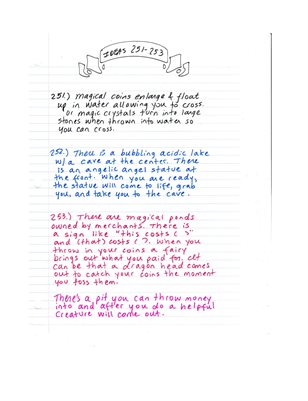 IDEAS 251-253
251.) Magical coins enlarge & float
up in water allowing you to cross.
Or magic crystals turn into large
stones when thrown into water so
you can cross.
252.) There is a bubbling acidic lake
w/ a cave at the center. There
is an angelic angel statue at
the front. When you are ready,
the statue will come to life, grab
you, and take you to the cave.
253.) There are magical ponds
owned by merchants. There is
a sign like "this costs ( )"
and (that) costs ( ). When you
throw in your coins a fairy
brings out what you paid for. It
can be that a dragon head comes
out to catch your coins the moment
you toss them.
There's a pit you can throw money
into and after you do a helpful
creature will come out.